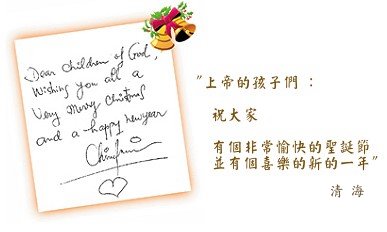 Dear children of God,
Wishing you all a
Very merry christmas
and a happy new year
"上帝的孩子們 :
祝大家
有個非常愉快的聖誕節
並有個喜樂的新的一年"
清 海